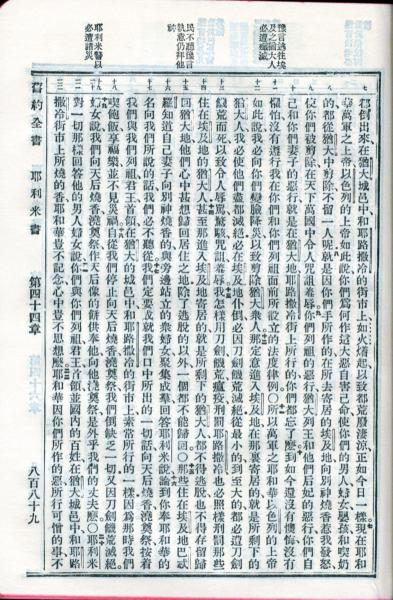 豫言逃往埃
及之猶大人
必遭殲滅
民不聽豫言
執意仍拜他
神
耶利米警以
必遭諸災
都倒出來在猶大城邑中和耶路撒冷的街市上如火燔起以致都荒廢淒涼正如今日一樣現在耶和
華萬軍之上帝以色列的上帝如此說你們爲何作這大惡自害己命使你們的男人婦女嬰孩和喫奶
的都從猶大中剪除不留一人呢就是因你們手所作的在所去寄居的埃及地向別神燒香惹我發怒
使你們被剪除在天下萬國中令人咒詛羞辱你們列祖的惡行猶大列王和他們后妃的惡行你們自
己和你們妻子的惡行就是在猶大地耶路撒冷街上所行的你們都忘了麼到如今還沒有懊悔沒有
懼怕沒有遵行我在你們和你們列祖面前所設立的法度律例所以萬軍之耶和華以色列的上帝
如此說我必向你們變臉降災以致剪除猶大衆人那定意進入埃及地在那裏寄居的就是所剩下的
猶大人我必使他們盡都滅絕必在埃及地仆倒必因刀劍饑荒滅絕從最小的到至大的都必遭刀劍
饑荒而死以致令人辱罵驚駭咒詛羞辱我怎樣用刀劍饑荒瘟疫刑罰耶路撒冷也必照樣刑罰那些
住在埃及地的猶大人甚至那進入埃及地寄居的就是所剩下的猶大人都不得逃脫也不得存留歸
回猶大地他們心中甚想歸回居住之地除了逃脫的以外一個都不能歸回那些住在埃及地巴忒
羅知道自己妻子向別神燒香的與旁邊站立的衆婦女聚集成羣回答耶利米說論到你奉耶和華的
名向我們所說的話我們必不聽從我們定要成就我們口中所出的一切話向天后燒香澆奠祭按着
我們與我們列祖君王首領在猶大的城邑中和耶路撒冷的街市上素常所行的一樣因爲那時我們
喫飽飯享福樂並不見災禍自從我們停止向天后燒香澆奠祭我們倒缺乏一切又因刀劍饑荒滅絕
婦女說我們向天后燒香澆奠祭作天后像的餅供奉他向他澆奠祭是外乎我們的丈夫麼耶利米
對一切那樣回答他的男人婦女說你們與你們列祖君王首領並國內的百姓在猶大城邑中和耶路
撒冷街市上所燒的香耶和華豈不記念心中豈不思想麼耶和華因你們所作的惡所行可憎的事不
舊約全書 耶利米書 第四十四章 八百八十九